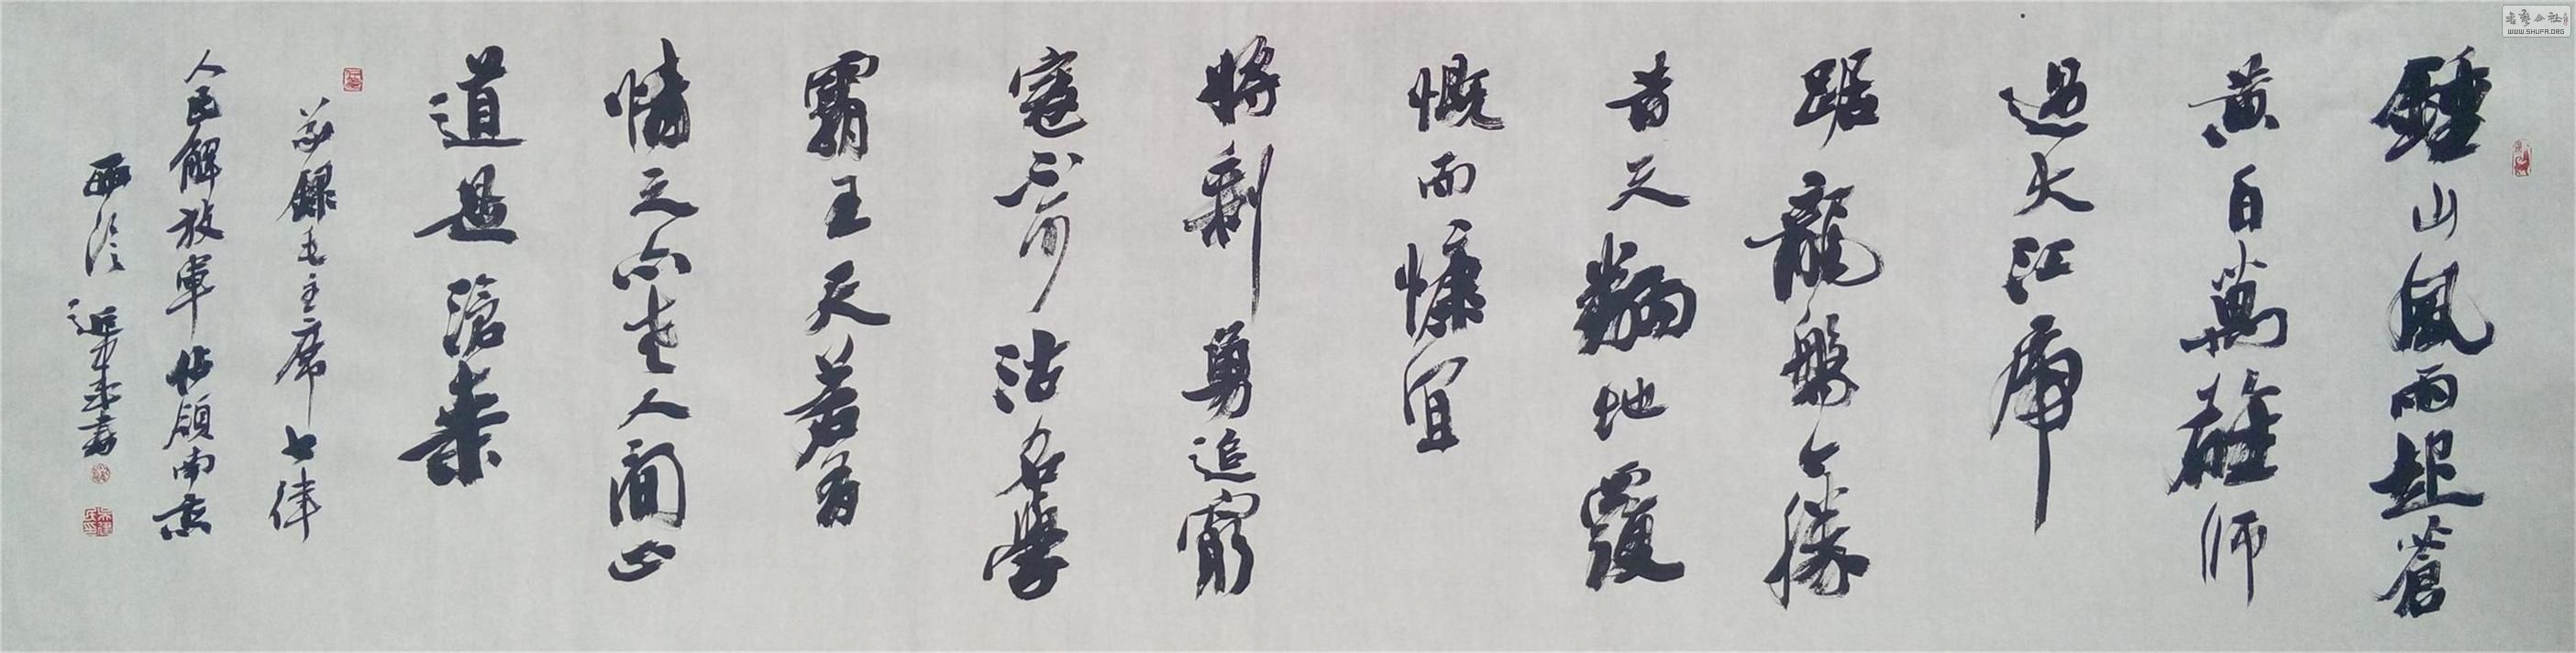 鍾山風雨起蒼
黄百萬雄師
過大江虎
踞龍盤今勝
昔天翻地覆
慨而慷宜
將剩勇追窮
寇不可沽名學
霸王天若有
情天亦老人間正
道是滄桑
敬録毛主席七律
人民解放軍佔領南京
書
WWW.SHUFA.ORG